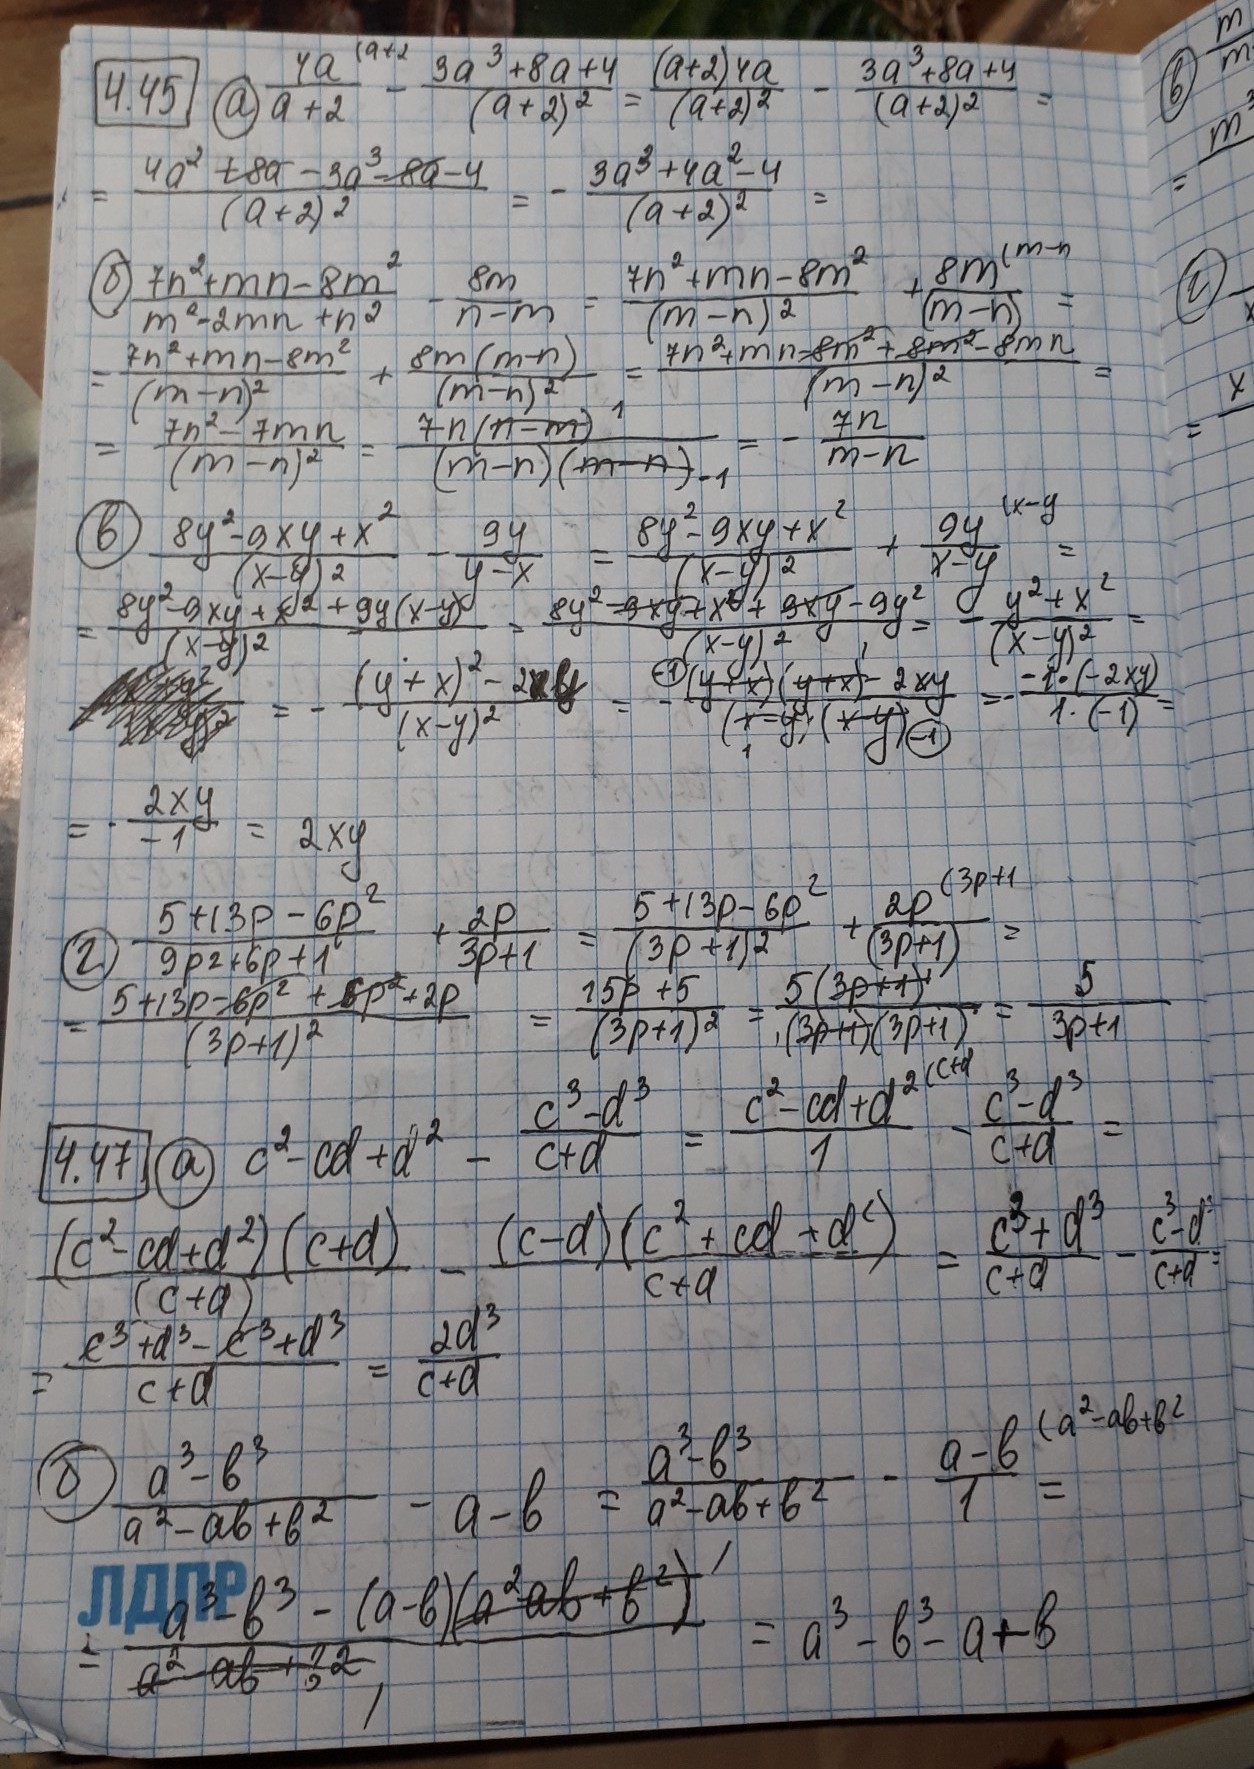 4.45 а) 4a/(a+2) (a+2 - (3a³+8a+4)/(a+2)² = (a+2)4a/(a+2)² - (3a³+8a+4)/(a+2)² =
= (4a²+8a-3a³-8a-4)/(a+2)² = - (3a³+4a²-4)/(a+2)² =
б) (7n²+mn-8m²)/(m²-2mn+n²) - 8m/(n-m) = (7n²+mn-8m²)/(m-n)² + 8m (m-n/(m-n) =
= (7n²+mn-8m²)/(m-n)² + 8m(m-n)/(m-n)² = (7n²+mn-8m²+8m²-8mn)/(m-n)² =
= (7n²-7mn)/(m-n)² = 7n(n-m) 1/(m-n)(m-n) -1 = - 7n/(m-n)
в) (8y²-9xy+x²)/(x-y)² - 9y/(y-x) = (8y²-9xy+x²)/(x-y)² + 9y (x-y/(x-y) =
= (8y²-9xy+x²+9y(x-y))/(x-y)² = (8y²-9xy+x²+9xy-9y²)/(x-y)² = - (y²+x²)/(x-y)² =
= - ((y+x)²-2xy)/(x-y)² = - -1 (y+x)(y+x) 1 - 2xy/(x-y) 1 (x-y) -1 = - -1·(-2xy)/1·(-1) =
= - 2xy/-1 = 2xy
г) (5+13p-6p²)/(9p²+6p+1) + 2p/(3p+1) = (5+13p-6p²)/(3p+1)² + 2p (3p+1/(3p+1) =
= (5+13p-6p²+6p²+2p)/(3p+1)² = (15p+5)/(3p+1)² = 5(3p+1) 1/1 (3p+1)(3p+1) = 5/(3p+1)
4.47 а) c²-cd+d² - (c³-d³)/(c+d) = (c²-cd+d²) (c+d/1 - (c³-d³)/(c+d) =
(c²-cd+d²)(c+d)/(c+d) - (c-d)(c²+cd+d²)/(c+d) = (c³+d³)/(c+d) - (c³-d³)/(c+d) =
= (c³+d³-c³+d³)/(c+d) = 2d³/(c+d)
б) (a³-b³)/(a²-ab+b²) - a-b = (a³-b³)/(a²-ab+b²) - (a-b) (a²-ab+b²/1 =
ЛДПР
= (a³-b³-(a-b)(a²-ab+b²)) 1/(a²-ab+b²) 1 = a³-b³-a+b